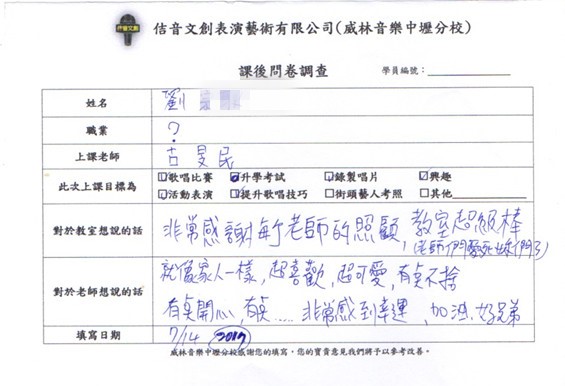 佶音文創
佶音文創表演藝術有限公司(威林音樂中壢分校)
課後問卷調查
學員編號：
姓名 劉
職業 ?
上課老師 古旻民
此次上課目標為 ☐歌唱比賽 ☑升學考試 ☐錄製唱片 ☑興趣
☑活動表演 ☑提升歌唱技巧 ☐街頭藝人考照 ☐其他
對於教室想說的話 非常感謝每个老師的照顧，教室超級棒
(老師們 們了)
對於老師想說的話
就像家人一樣，超喜歡，超可愛，有點不捨
有點開心，有點..... 非常感到幸運，加油，好兄弟
填寫日期 7/14 2017
威林音樂中壢分校感謝您的填寫，您的寶貴意見我們將予以參考改善。